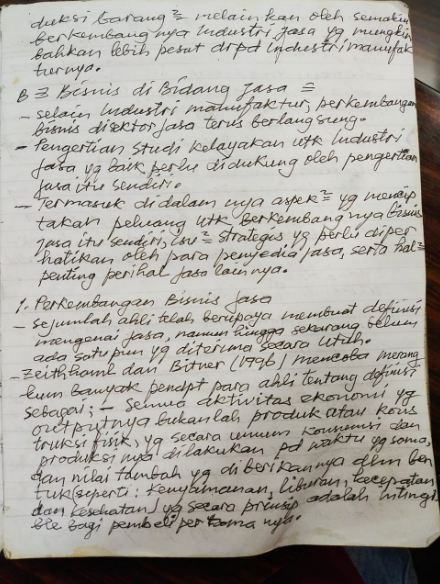 duksi barang² melainkan oleh semakin
berkembangnya Industri Jasa yg mungkin
bahkan lebih pesat drpd Industri manufak
turnya.
B = Bisnis di Bidang Jasa =
- selain Industri manufaktur, perkembangan
bisnis disektor Jasa terus berlangsung.
- Pengertian Studi kelayakan utk Industri
Jasa yg baik perlu didukung oleh pengertian
Jasa itu sendiri.
- Termasuk didalam nya aspek² yg mencip
takan peluang utk berkembangnya bisnis
Jasa itu sendiri, isu² strategis yg perlu diper
hatikan oleh para penyedia Jasa, serta hal²
penting perihal Jasa lainnya.
1. Perkembangan Bisnis Jasa
- Sejumlah ahli telah berupaya membuat definisi
mengenai Jasa, namun hingga sekarang belum
ada satupun yg diterima secara utuh.
- Zeithhaml dan Bitner (1996) mencoba merang
kum banyak pendpt para ahli tentang definisi
sebagai; - Semua aktivitas ekonomi yg
outputnya bukanlah produk atau kons
truksi fisik, yg secara umum konsumsi dan
produksi nya dilakukan pd waktu yg sama,
dan nilai tambah yg diberikannya dlm ben
tuk (seperti: kenyamanan, liburan, kecepatan
dan kesehatan) yg secara prinsip adalah intingi
ble bagi pembeli pertama nya.